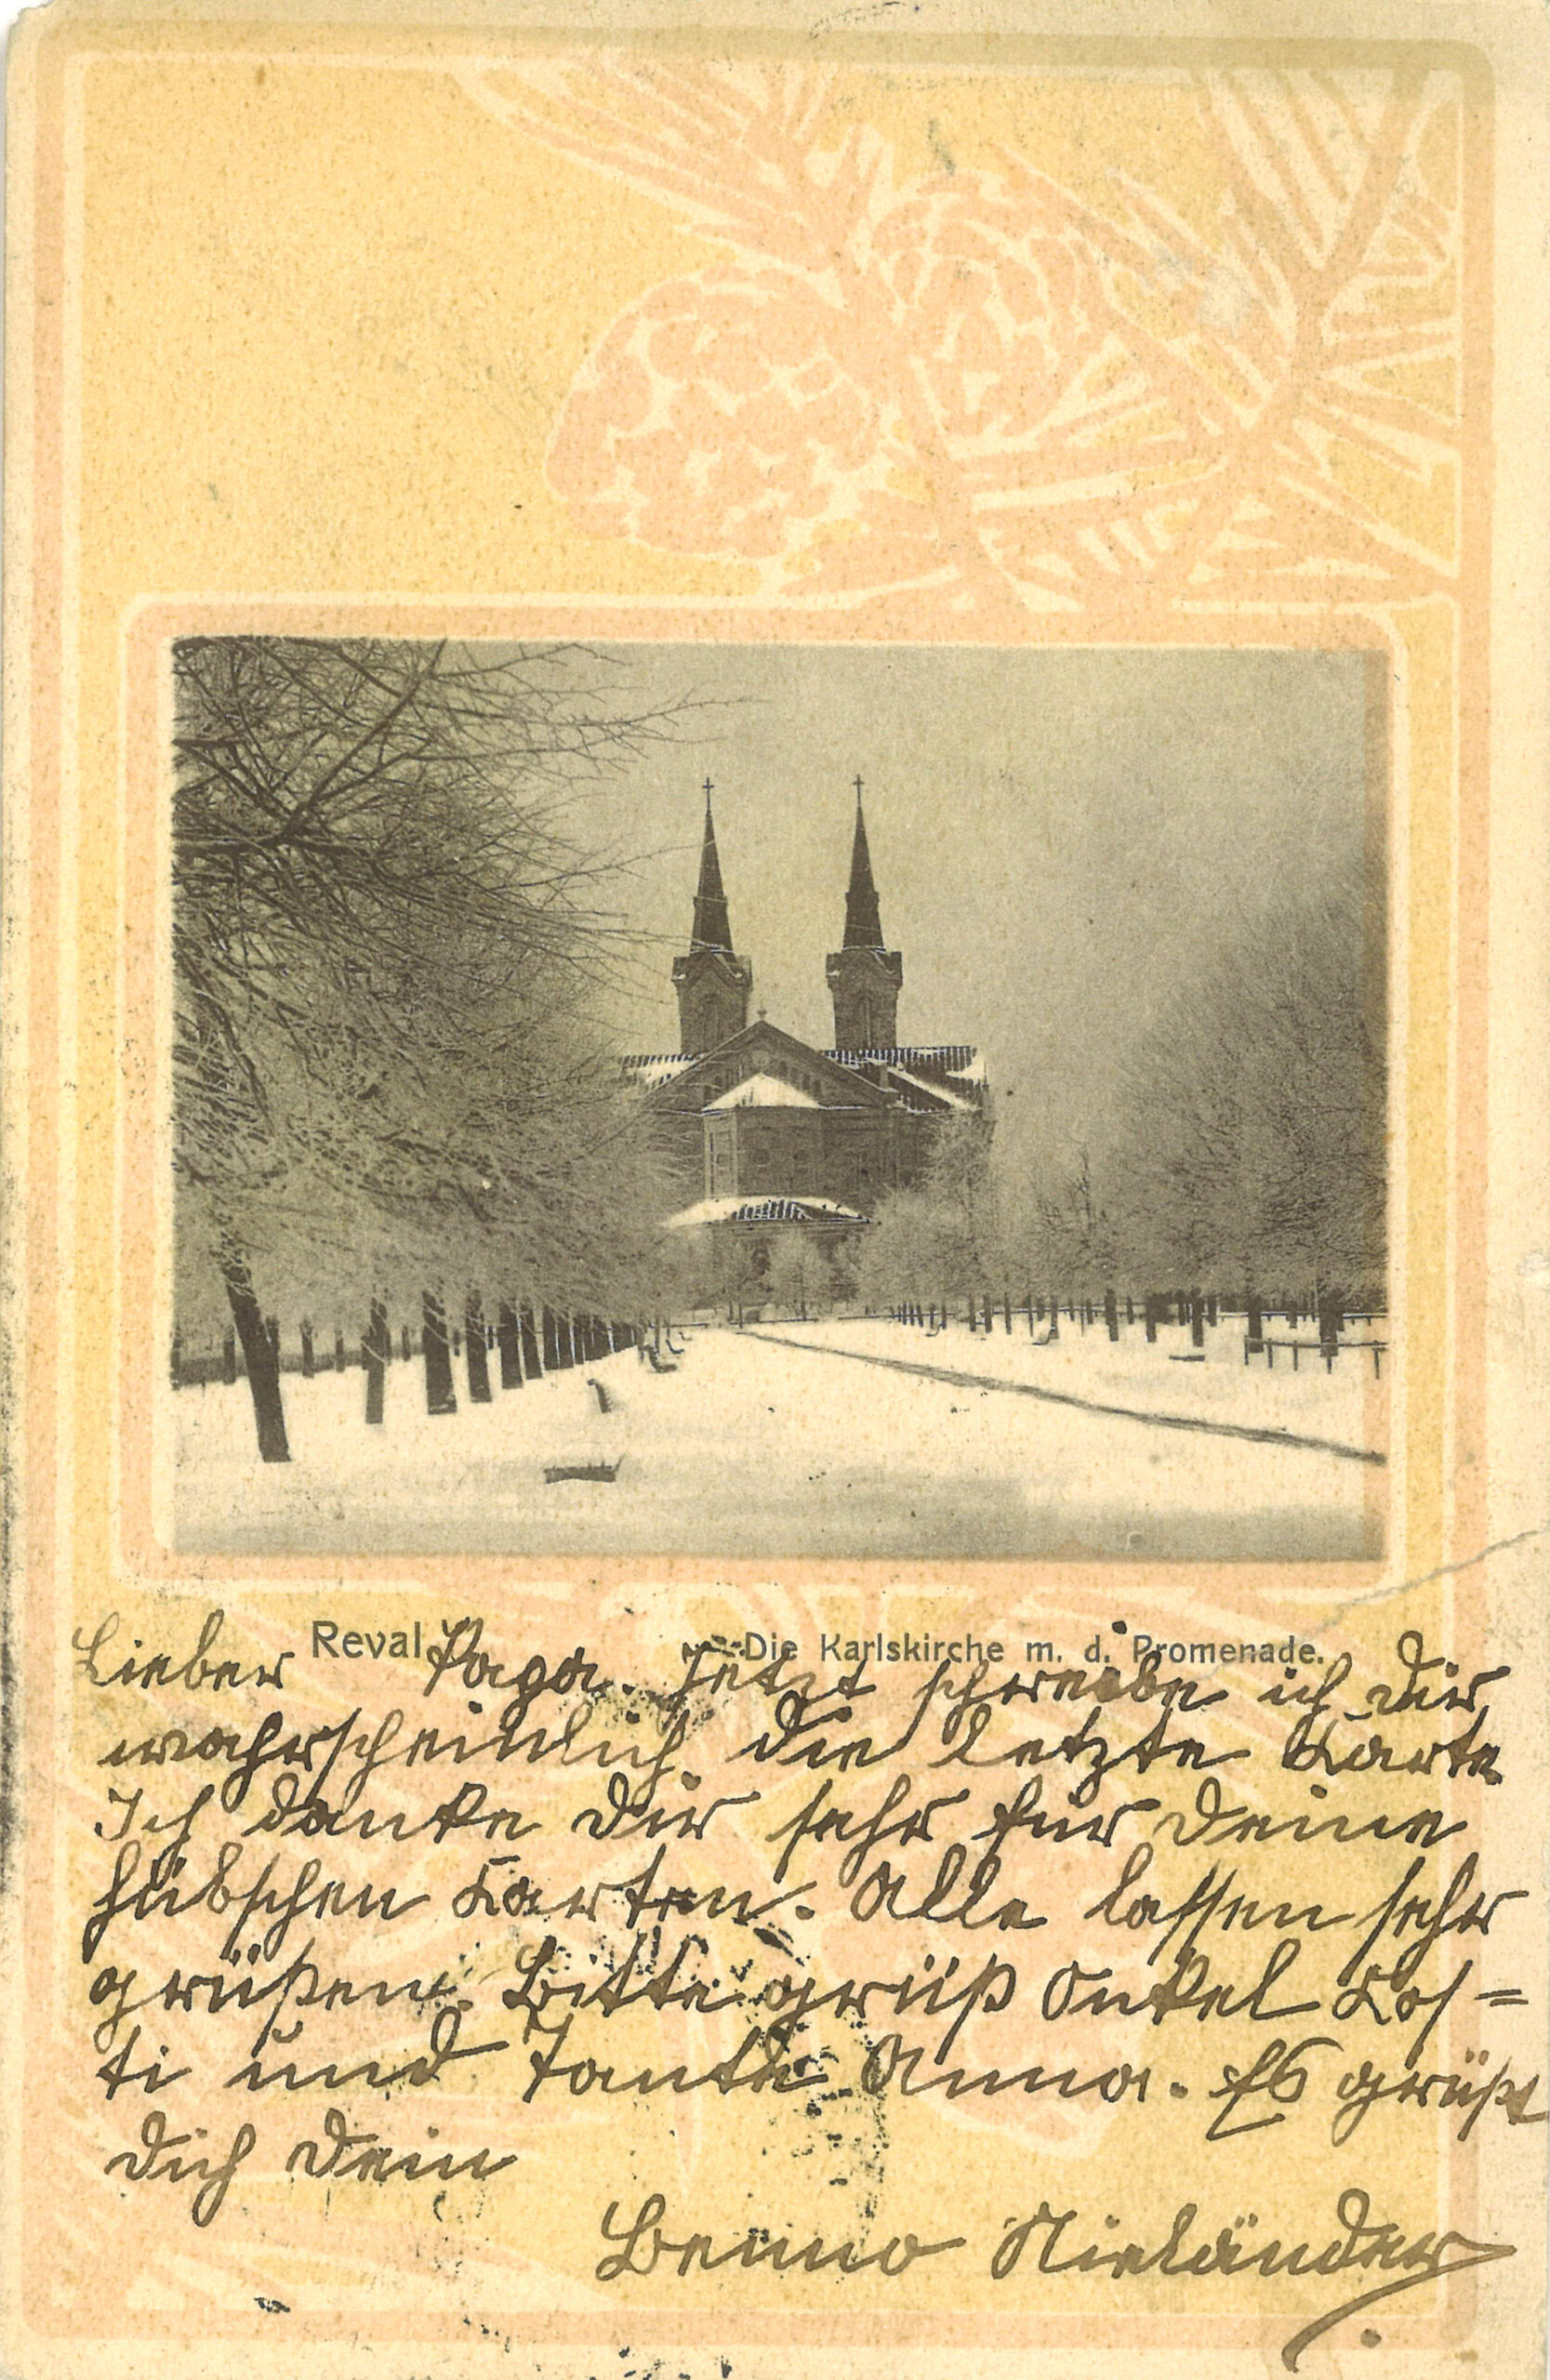 Reval. Die Karlskirche m. d. Promenade.
Lieber Papa. Jetzt schreibe ich Dir
wahrscheinlich die letzte Karte.
Ich danke Dir sehr für Deine
hübschen Karten. Alle lassen sehr
grüßen. Bitte grüß Onkel Kos=
ti und Tante Anna. Es grüßt
Dich Dein
Benno Nieländer